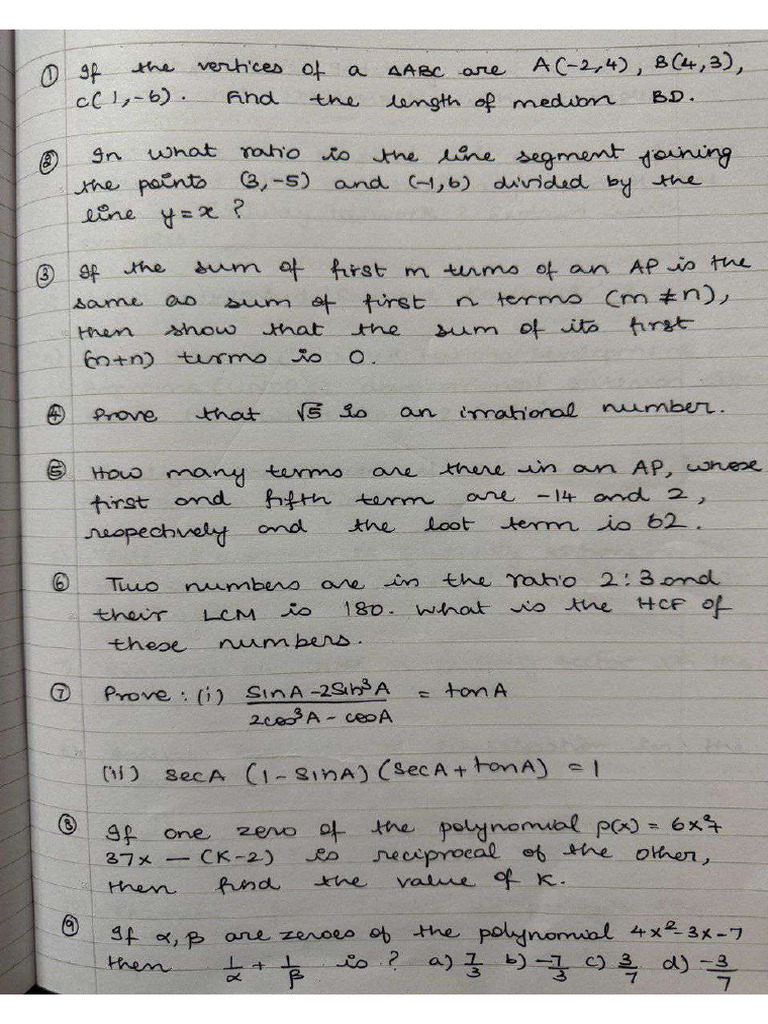 ① If the vertices of a △ABC are A(-2,4), B(4,3),
C(1,-6). Find the length of median BD.
② In what ratio is the line segment joining
the points (3,-5) and (-1,6) divided by the
line y=x?
③ If the sum of first m terms of an AP is the
same as sum of first n terms (m≠n),
then show that the sum of its first
(m+n) terms is 0.
④ Prove that √5 is an irrational number.
⑤ How many terms are there in an AP, whose
first and fifth term are -14 and 2,
respectively and the last term is 62.
⑥ Two numbers are in the ratio 2:3 and
their LCM is 180. What is the HCF of
these numbers.
⑦ Prove: (i) (SinA-2Sin³A)/(2cos³A-cosA) = tanA
(ii) secA (1-sinA)(secA+tanA) = 1
⑧ If one zero of the polynomial p(x) = 6x²+
37x-(K-2) is reciprocal of the other,
then find the value of K.
⑨ If α, β are zeroes of the polynomial 4x²-3x-7
then 1/α + 1/β is? a) 7/3 b) -7/3 c) 3/7 d) -3/7